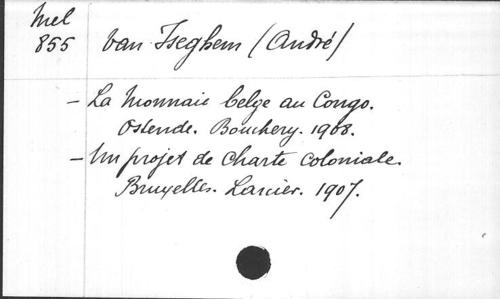 Mel
855
Van Iseghem (André)
- La Monnaie belge au Congo.
Ostende. Bouchery. 1908.
- Un projet de Charte coloniale.
Bruxelles. Larcier. 1907.